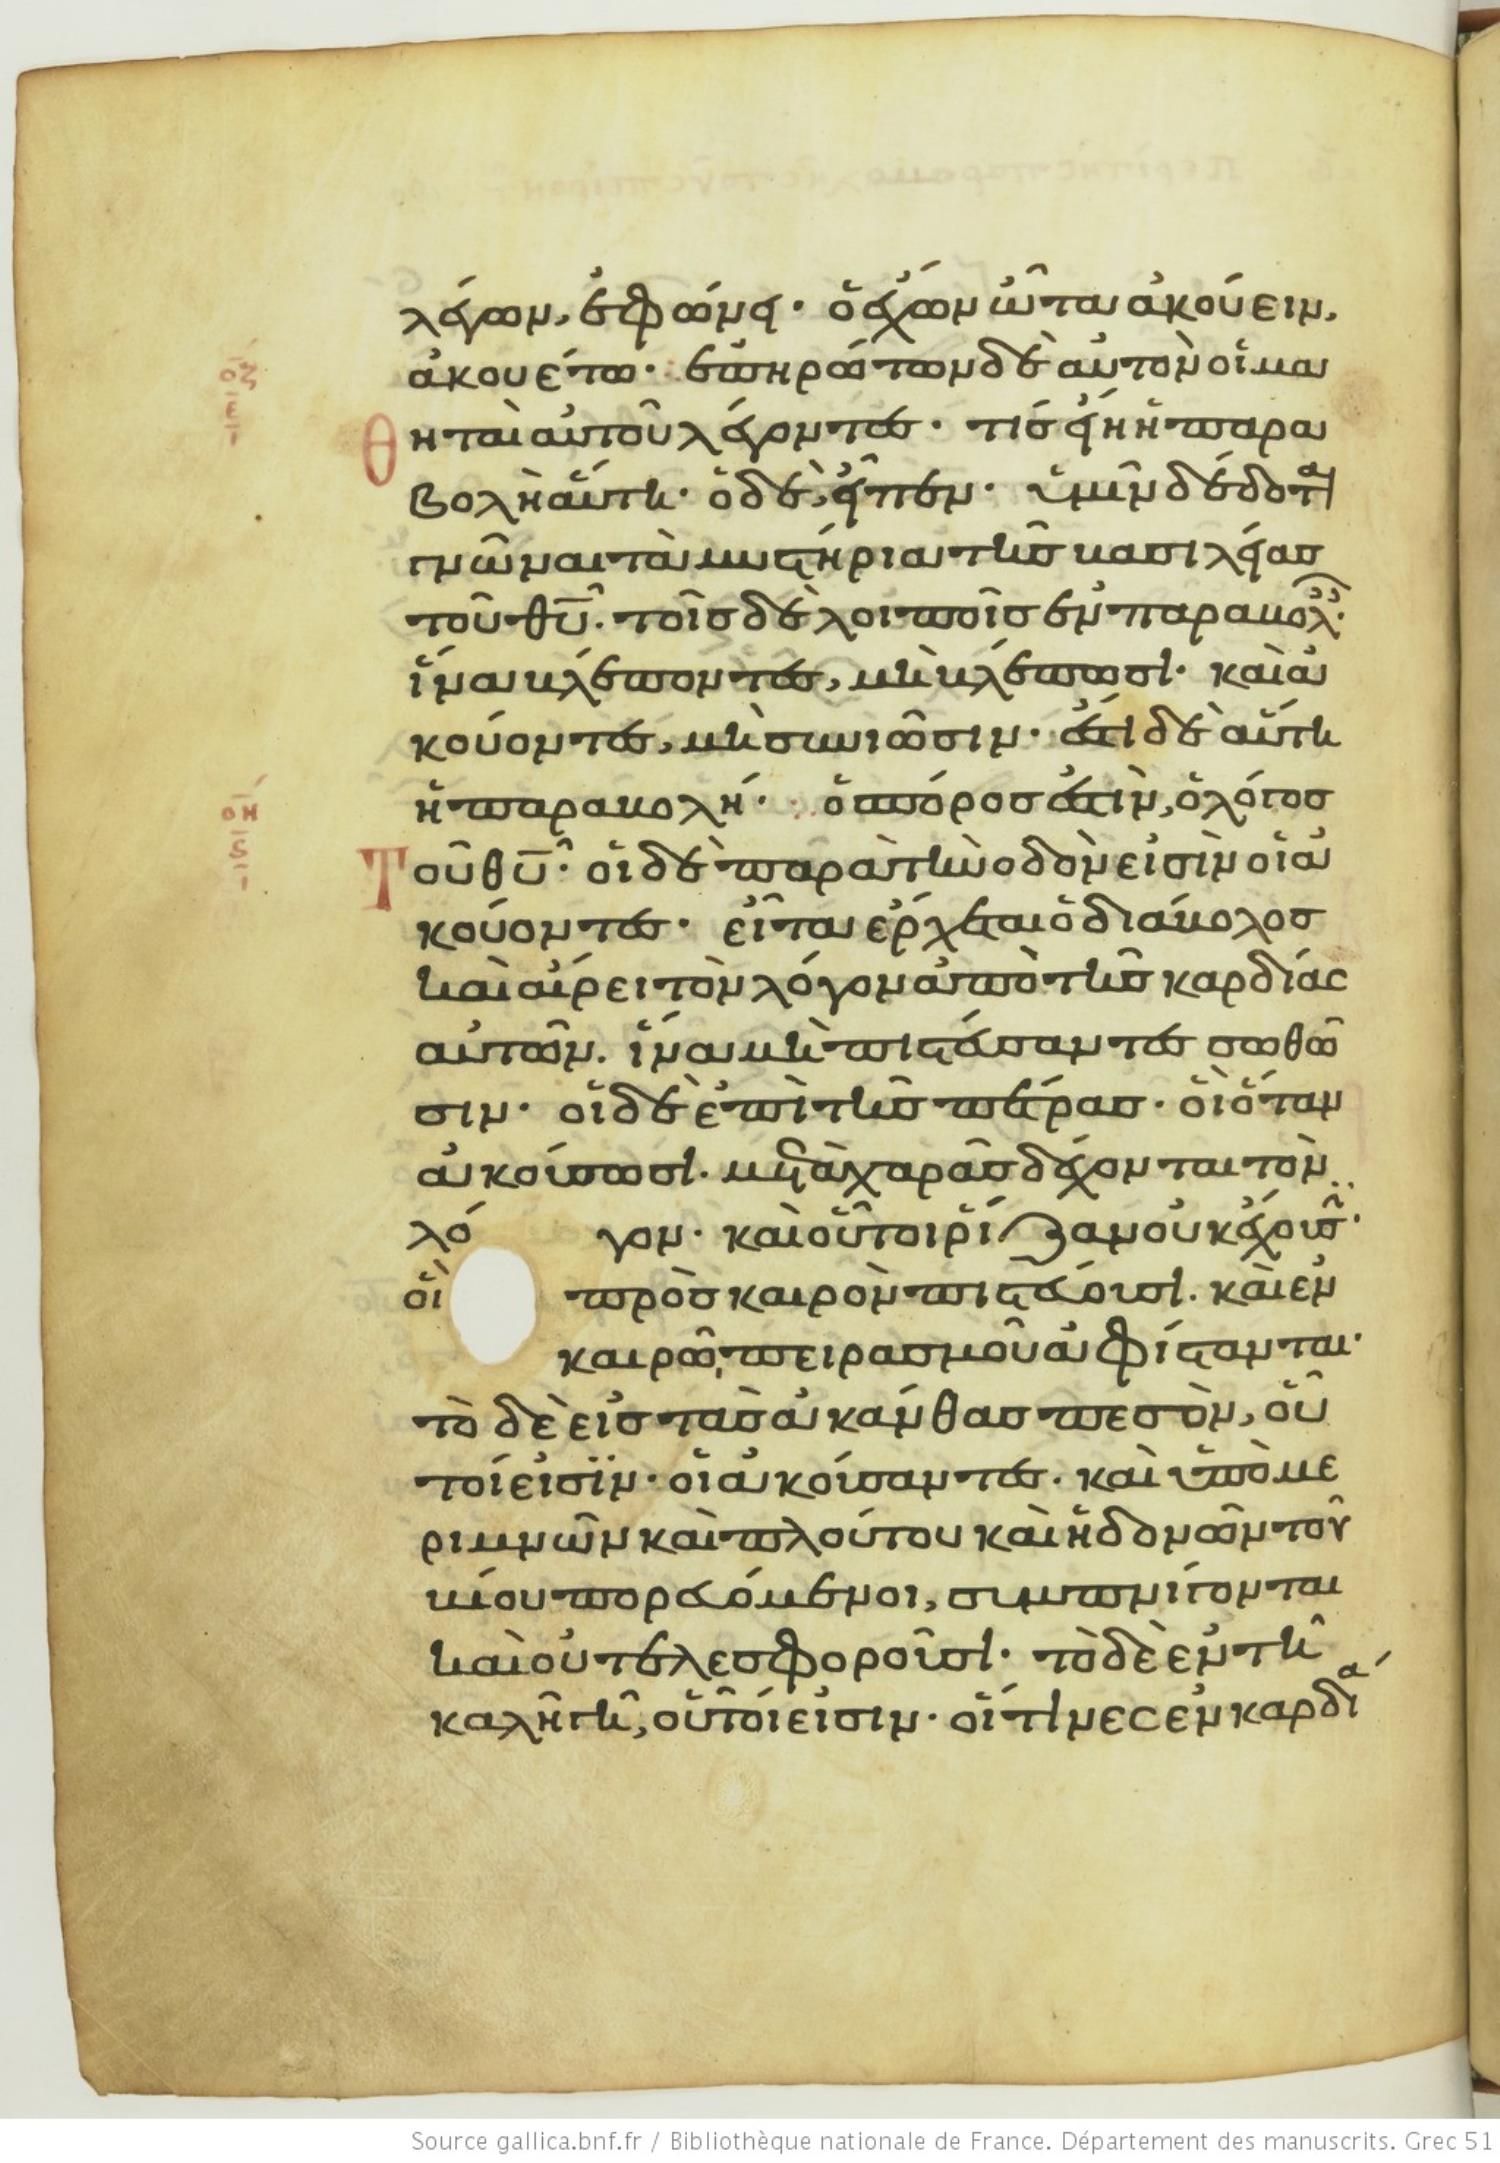 λέγων, ἐφώνει· ὁ ἔχων ὦτα ἀκούειν,
ἀκουέτω· ἐπηρώτων δὲ αὐτὸν οἱ μα
οζ
ε
ι
θηταὶ αὐτοῦ λέγοντες· τίς εἴη ἡ παρα
βολὴ αὕτη· ὁ δὲ, εἶπεν· ὑμῖν δέδοτ(αι)
γνῶναι τὰ μυστήρια τῆς βασιλείας
τοῦ θῦ. τοῖς δὲ λοιποῖς ἐν παραβολ·
ἵνα βλέποντες, μὴ βλέπωσι· καὶ ἀ
κούοντες, μὴ συνιῶσιν· ἔστι δὲ αὕτη
ἡ παραβολή· ὁ σπόρος ἐστὶν, ὁ λόγος
οη
ς
ι
Τοῦ θῦ· οἱ δὲ παρὰ τὴν ὁδὸν εἰσὶν οἱ ἀ
κούοντες· εἶτα ἔρχεται ὁ διάβολος
καὶ αἴρει τὸν λόγον ἀπὸ τῆς καρδίας
αὐτῶν. ἵνα μὴ πιστεύσαντες σωθῶ
σιν· οἱ δὲ ἐπὶ τῆς πέτρας· οἳ ὅταν
ἀκούσωσι. μετὰ χαρᾶς δέχονται τὸν
λό γον· καὶ οὗτοι ῥίζαν οὐκ ἔχουσ·
οἳ πρὸς καιρὸν πιστεύουσι. καὶ ἐν
καιρῷ πειρασμοῦ ἀφίστανται·
τὸ δὲ εἰς τὰς ἀκάνθας πεσὸν, οὗ
τοί εἰσϊν· οἱ ἀκούσαντες. καὶ ὑπὸ με
ριμνῶν καὶ πλούτου καὶ ἡδονῶν τοῦ
βίου πορευόμενοι, συμπνίγονται
καὶ οὐ τελεσφοροῦσι· τὸ δὲ ἐν τῆ
καλῆ γῆ, οὗτοί εἰσιν· οἵτινες ἐν καρδία
Source gallica.bnf.fr / Bibliothèque nationale de France. Département des manuscrits. Grec 51